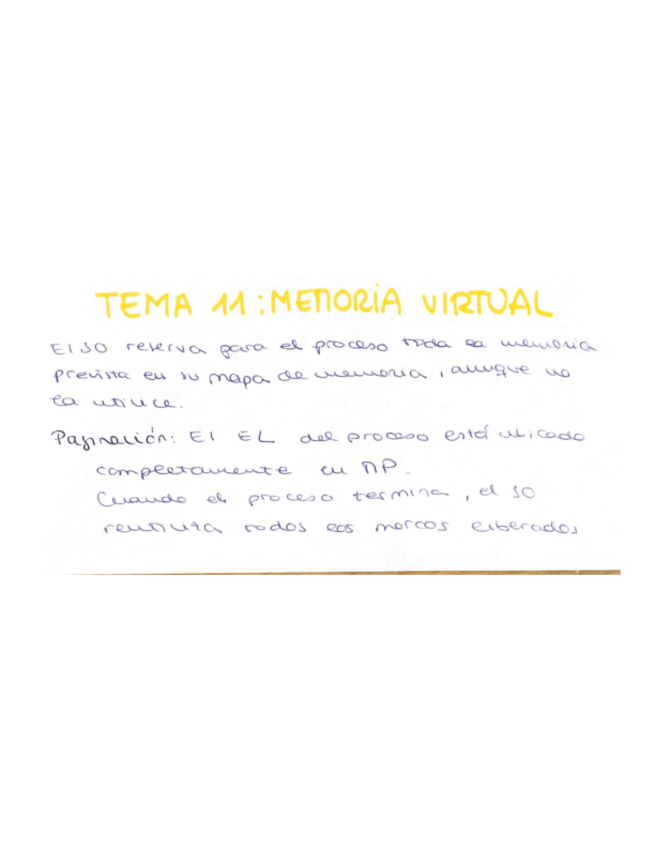 TEMA 11: MEMORIA VIRTUAL
El SO reserva para el proceso toda la memoria
prevista en su mapa de memoria, aunque no
la utilice.
Paginación: El EL del proceso está ubicado
completamente en MP.
Cuando el proceso termina, el SO
reutiliza todos los marcos liberados